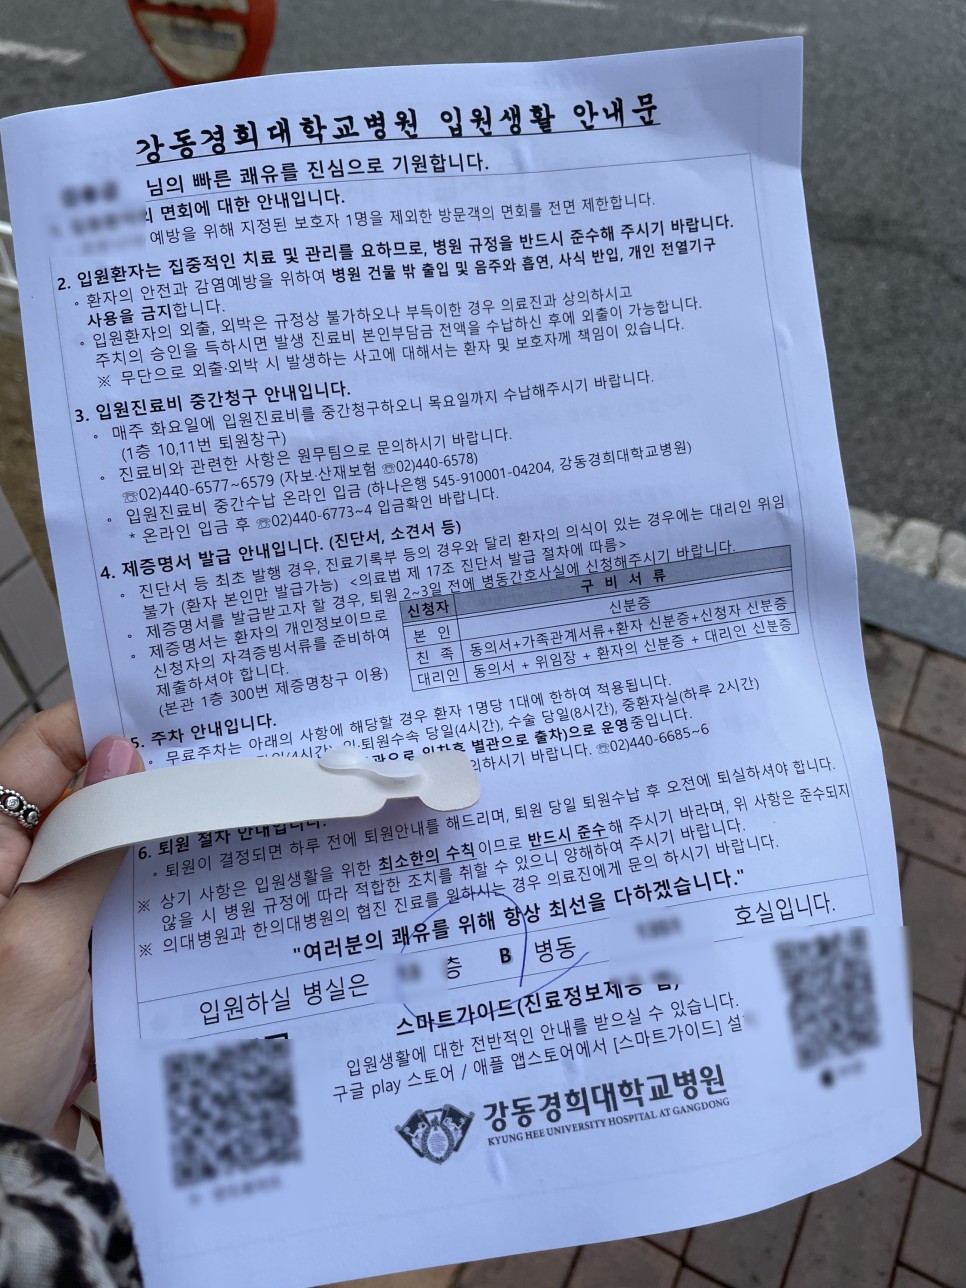 강동경희대학교병원 입원생활 안내문
님의 빠른 쾌유를 진심으로 기원합니다.
면회에 대한 안내입니다.
예방을 위해 지정된 보호자 1명을 제외한 방문객의 면회를 전면 제한합니다.
2. 입원환자는 집중적인 치료 및 관리를 요하므로, 병원 규정을 반드시 준수해 주시기 바랍니다.
◦ 환자의 안전과 감염예방을 위하여 병원 건물 밖 출입 및 음주와 흡연, 사식 반입, 개인 전열기구
사용을 금지합니다.
◦ 입원환자의 외출, 외박은 규정상 불가하오나 부득이한 경우 의료진과 상의하시고
주치의 승인을 득하시면 발생 진료비 본인부담금 전액을 수납하신 후에 외출이 가능합니다.
※ 무단으로 외출·외박 시 발생하는 사고에 대해서는 환자 및 보호자께 책임이 있습니다.
3. 입원진료비 중간청구 안내입니다.
◦ 매주 화요일에 입원진료비를 중간청구하오니 목요일까지 수납해주시기 바랍니다.
(1층 10,11번 퇴원창구)
◦ 진료비와 관련한 사항은 원무팀으로 문의하시기 바랍니다.
☏02)440-6577~6579 (자보·산재보험 ☏02)440-6578)
◦ 입원진료비 중간수납 온라인 입금 (하나은행 545-910001-04204, 강동경희대학교병원)
* 온라인 입금 후 ☏02)440-6773~4 입금확인 바랍니다.
4. 제증명서 발급 안내입니다. (진단서, 소견서 등)
◦ 진단서 등 최초 발행 경우, 진료기록부 등의 경우와 달리 환자의 의식이 있는 경우에는 대리인 위임
불가 (환자 본인만 발급가능) <의료법 제 17조 진단서 발급 절차에 따름>
◦ 제증명서를 발급받고자 할 경우, 퇴원 2~3일 전에 병동간호사실에 신청해주시기 바랍니다.
◦ 제증명서는 환자의 개인정보이므로
신청자의 자격증빙서류를 준비하여
제출하셔야 합니다.
(본관 1층 300번 제증명창구 이용)
신청자 구 비 서 류
본 인 신분증
친 족 동의서+가족관계서류+환자 신분증+신청자 신분증
대리인 동의서 + 위임장 + 환자의 신분증 + 대리인 신분증
5. 주차 안내입니다.
◦ 무료주차는 아래의 사항에 해당할 경우 환자 1명당 1대에 한하여 적용됩니다.
퇴원수속 당일(4시간), 수술 당일(8시간), 중환자실(하루 2시간)
별관으로 출차)으로 운영중입니다.
의하시기 바랍니다. ☏02)440-6685~6
6. 퇴원 절차 안내입니다.
◦ 퇴원이 결정되면 하루 전에 퇴원안내를 해드리며, 퇴원 당일 퇴원수납 후 오전에 퇴실하셔야 합니다.
※ 상기 사항은 입원생활을 위한 최소한의 수칙이므로 반드시 준수해 주시기 바라며, 위 사항은 준수되지
않을 시 병원 규정에 따라 적합한 조치를 취할 수 있으니 양해하여 주시기 바랍니다.
※ 의대병원과 한의대병원의 협진 진료를 원하시는 경우 의료진에게 문의 하시기 바랍니다.
"여러분의 쾌유를 위해 항상 최선을 다하겠습니다."
입원하실 병실은 층 B 병동 호실입니다.
스마트가이드(진료정보제공 앱)
입원생활에 대한 전반적인 안내를 받으실 수 있습니다.
구글 play 스토어 / 애플 앱스토어에서 [스마트가이드] 설
강동경희대학교병원
KYUNG HEE UNIVERSITY HOSPITAL AT GANGDONG